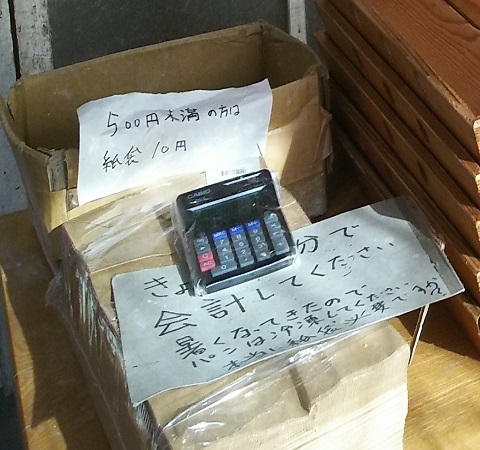 500円未満の方は
紙袋 10円
CASIO
分で
会計してください
暑くなってきたので
パンは冷凍してください